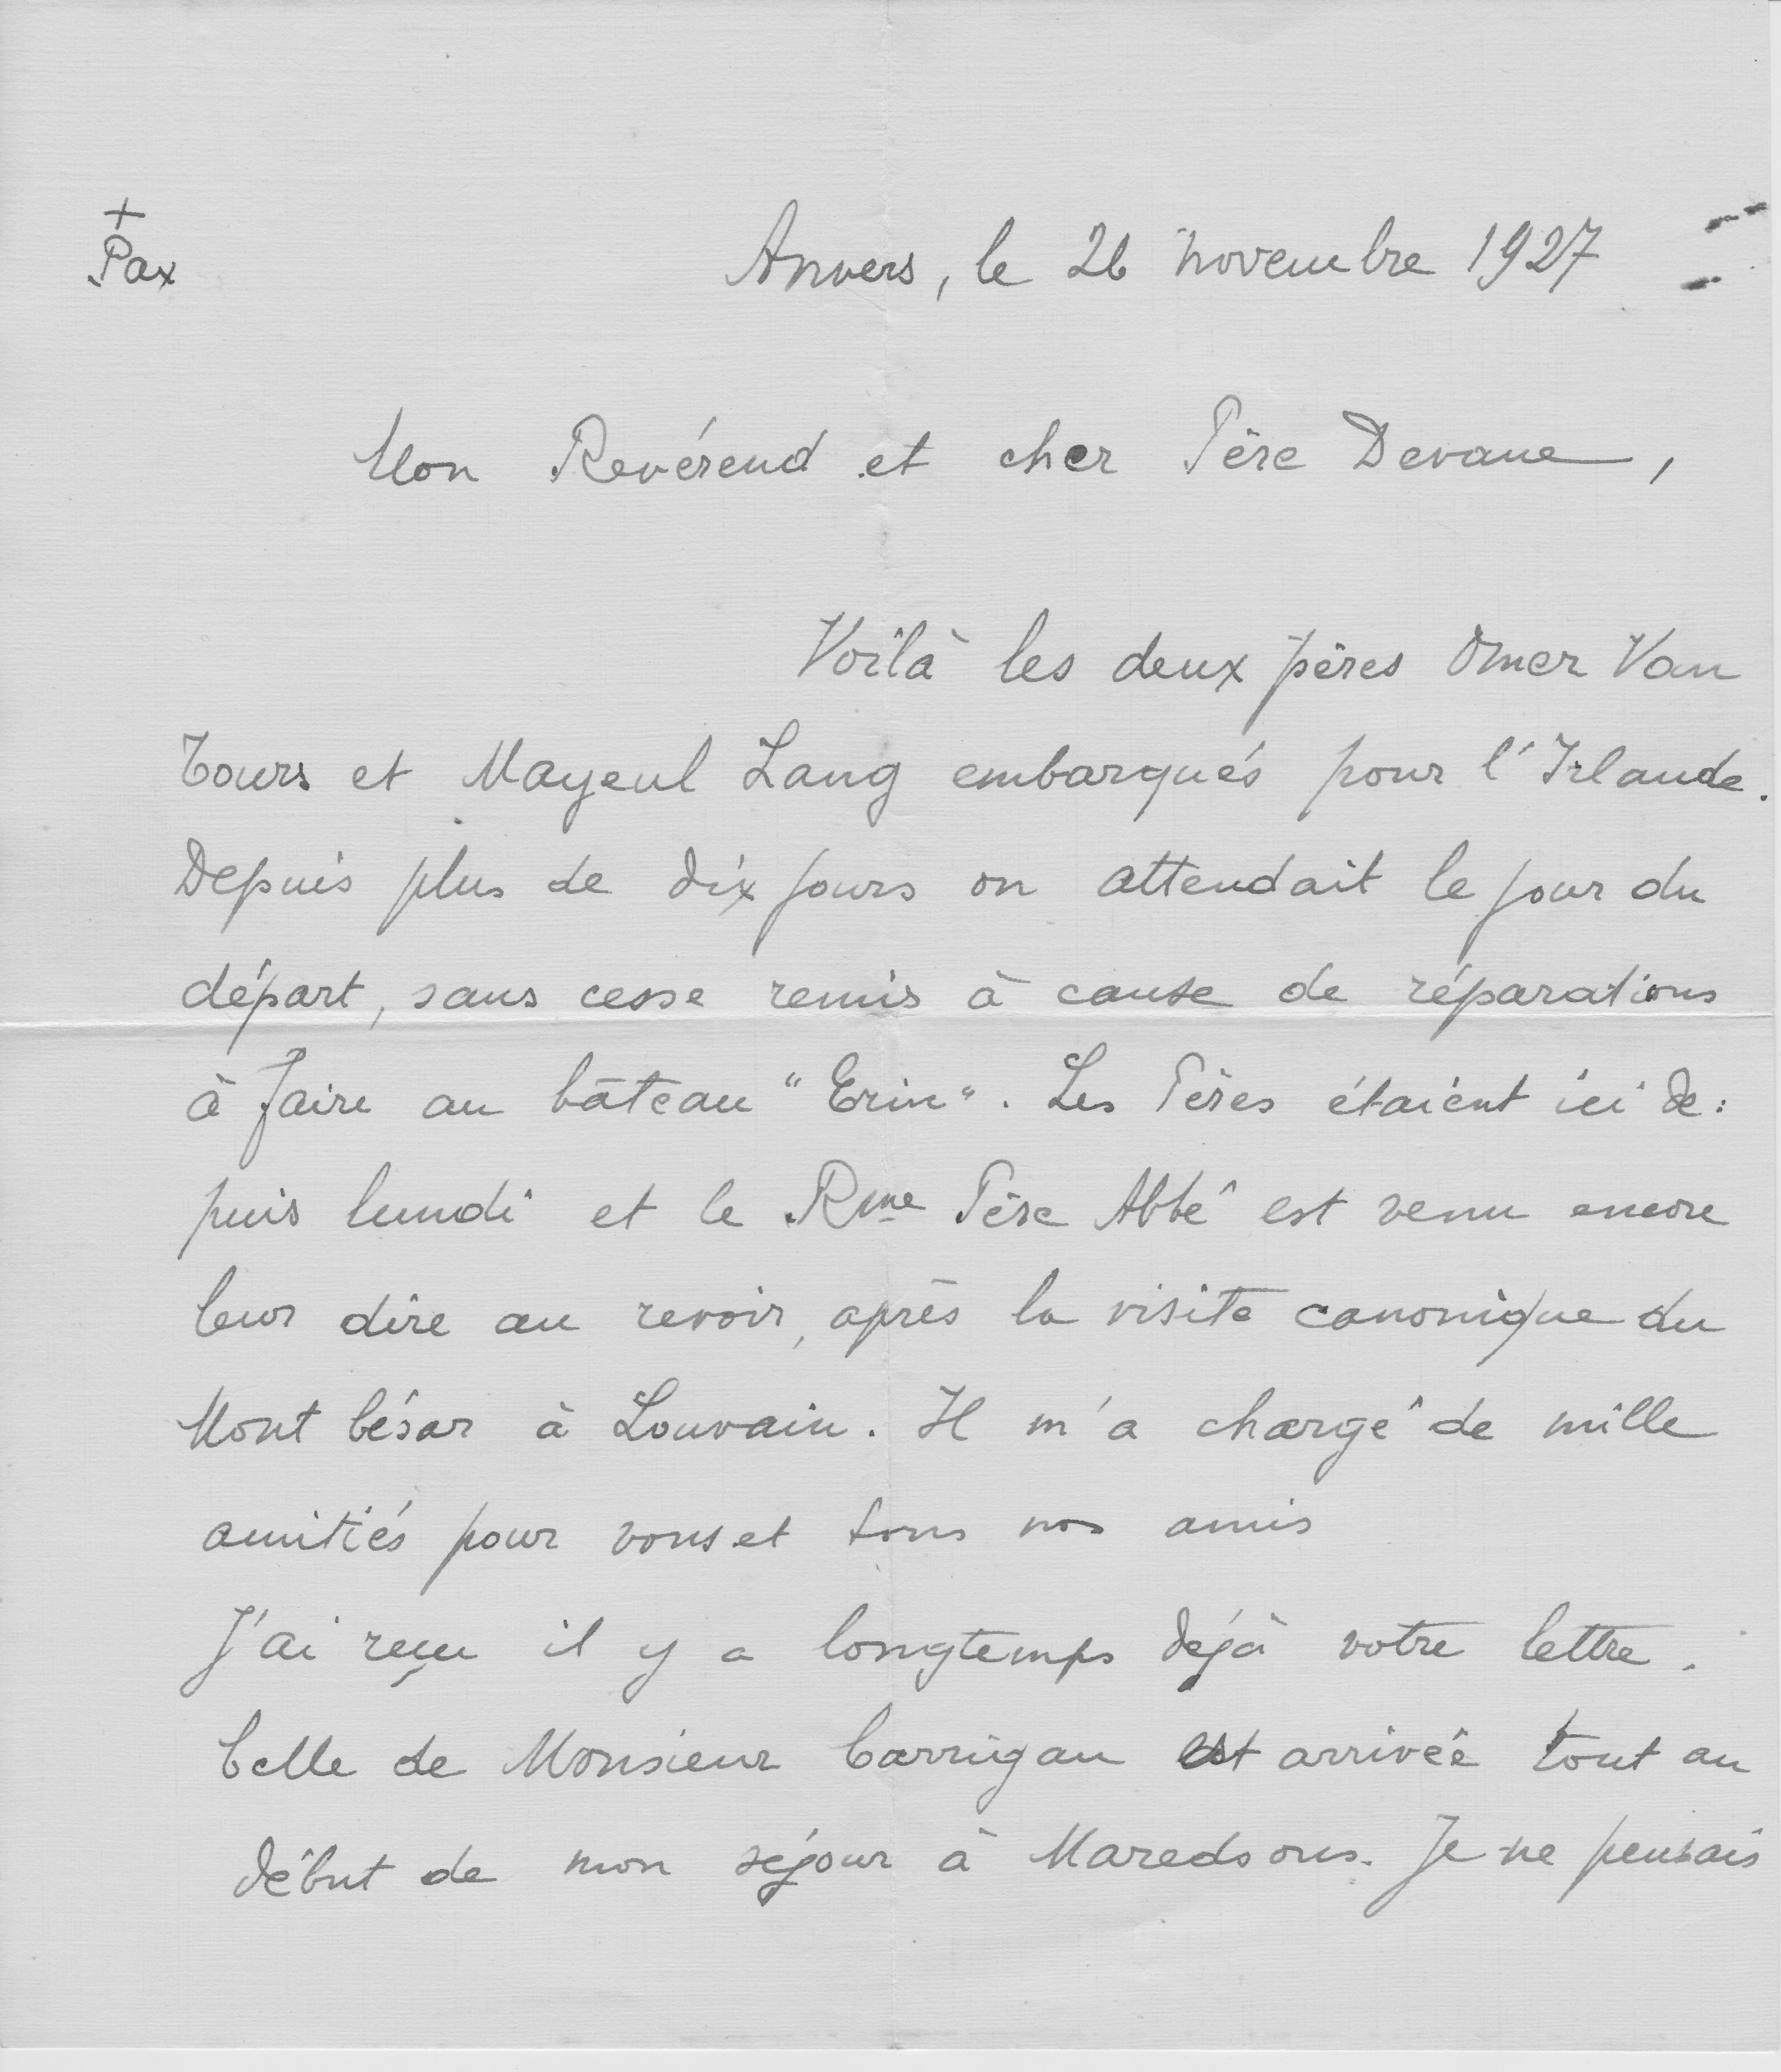 +
Pax
Anvers, le 26 novembre 1927
Mon Revérend et cher Père Devane,
Voilà les deux pères Omer Van
Tours et Mayeul Lang embarqués pour l'Irlande.
Depuis plus de dix jours on attendait le jour du
départ, sans cesse remis à cause de réparations
à faire au bâteau "Erin". Les Pères étaient ici de:
puis lundi et le Rme Père Abbé est venu encore
leur dire au revoir, après la visite canonique du
Mont César à Louvain. Il m'a chargé de mille
amitiés pour vous et tous nos amis
J'ai reçu il y a longtemps déjà votre lettre.
Celle de Monsieur Carrigan est arrivée tout au
début de mon séjour à Maredsous. Je ne pensais